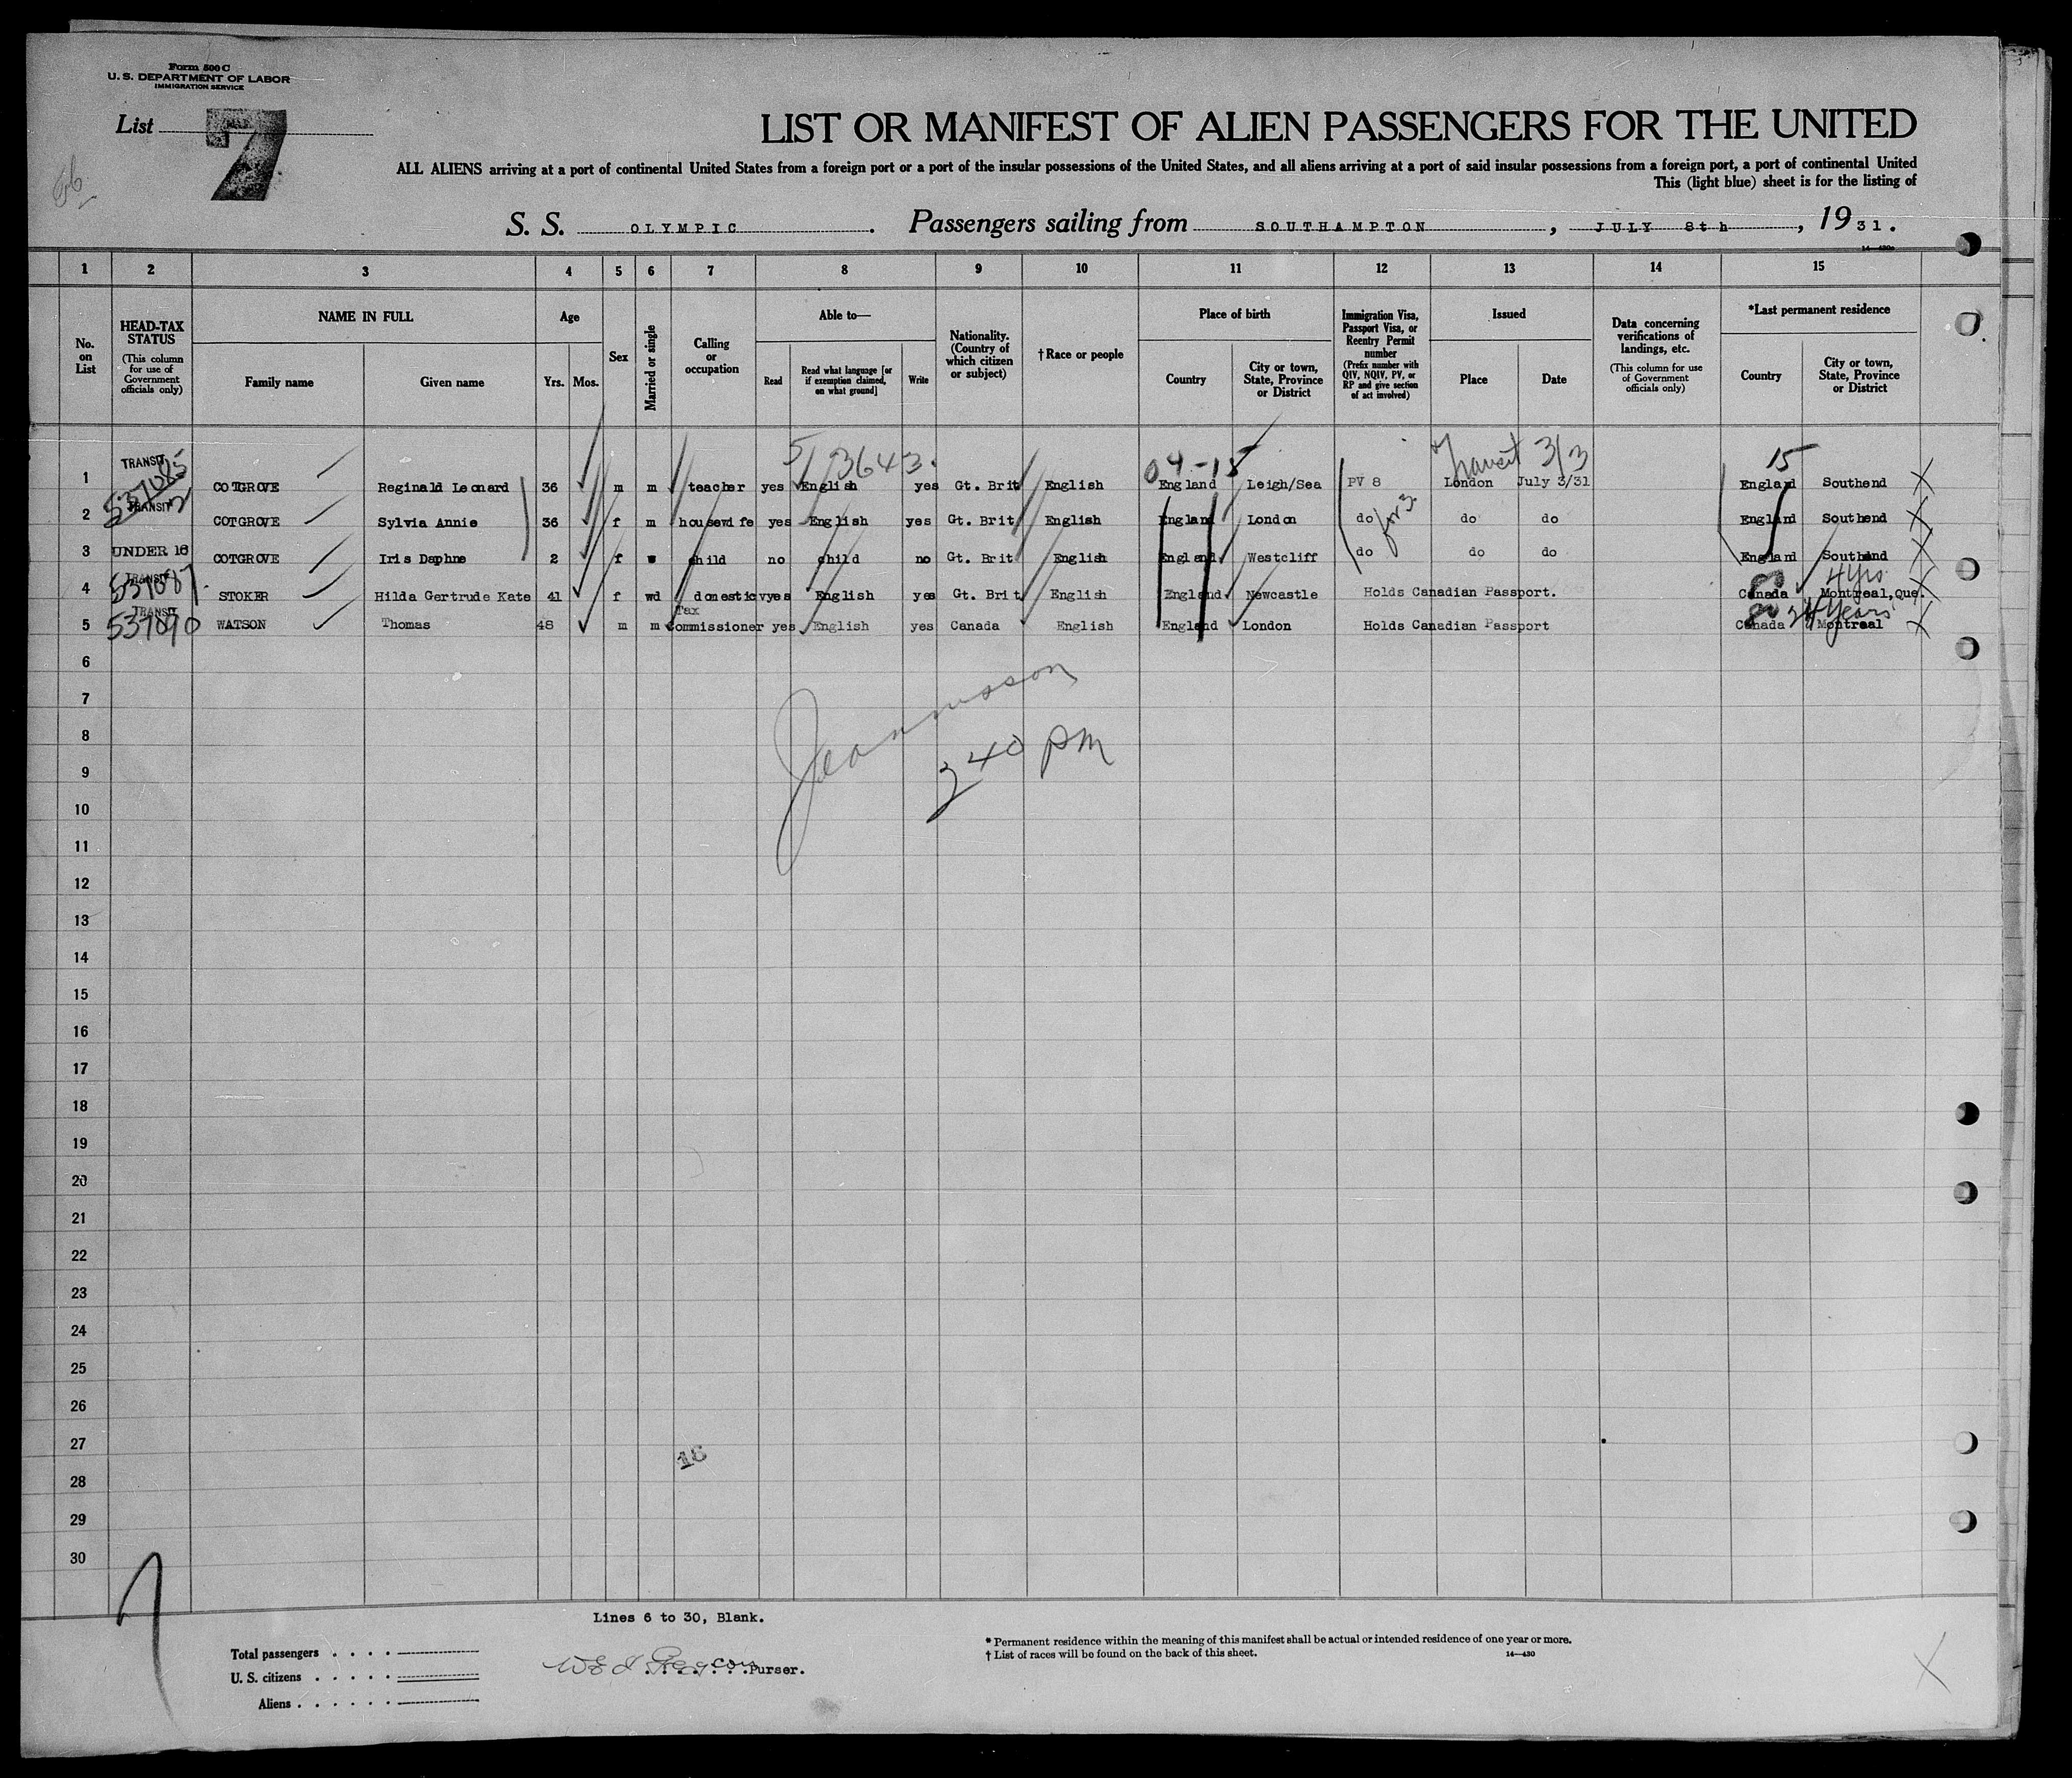 Form 500 C
U. S. DEPARTMENT OF LABOR
IMMIGRATION SERVICE
List 7
LIST OR MANIFEST OF ALIEN PASSENGERS FOR THE UNITED
ALL ALIENS arriving at a port of continental United States from a foreign port or a port of the insular possessions of the United States, and all aliens arriving at a port of said insular possessions from a foreign port, a port of continental United
This (light blue) sheet is for the listing of
S. S. OLYMPIC. Passengers sailing from SOUTHAMPTON, JULY 8th, 1931.
14—430
1 2 3 4 5 6 7 8 9 10 11 12 13 14 15
No. on List
HEAD-TAX STATUS (This column for use of Government officials only)
NAME IN FULL
Family name
Given name
Age
Yrs. Mos.
Sex
Married or single
Calling or occupation
Able to—
Read
Read what language [or if exemption claimed, on what ground]
Write
Nationality. (Country of which citizen or subject)
†Race or people
Place of birth
Country
City or town, State, Province or District
Immigration Visa, Passport Visa, or Reentry Permit number (Prefix number with QIV, NQIV, PV, or RP and give section of act involved)
Issued
Place
Date
Data concerning verifications of landings, etc. (This column for use of Government officials only)
*Last permanent residence
Country
City or town, State, Province or District
5/3643. 04-15 Transit 3/3 15
1 TRANSIT COTGROVE Reginald Leonard 36 m m teacher yes English yes Gt. Brit English England Leigh/Sea PV 8 London July 3/31 England Southend
2 TRANSIT COTGROVE Sylvia Annie 36 f m housewife yes English yes Gt. Brit English England London do for 3 do do England Southend
3 UNDER 16 COTGROVE Iris Daphne 2 f s child no child no Gt. Brit English England Westcliff do do do England Southend
4 TRANSIT 537087. STOKER Hilda Gertrude Kate 41 f wd domestic yes English yes Gt. Brit English England Newcastle Holds Canadian Passport. Canada 4 yrs Montreal, Que.
5 TRANSIT 537090 WATSON Thomas 48 m m Tax Commissioner yes English yes Canada English England London Holds Canadian Passport Canada 24 years Montreal
6
7
8
9
240 PM
10
11
12
13
14
15
16
17
18
19
20
21
22
23
24
25
26
27
16
28
29
30
Lines 6 to 30, Blank.
Total passengers
U. S. citizens
Aliens
Purser.
* Permanent residence within the meaning of this manifest shall be actual or intended residence of one year or more.
† List of races will be found on the back of this sheet.
14—430